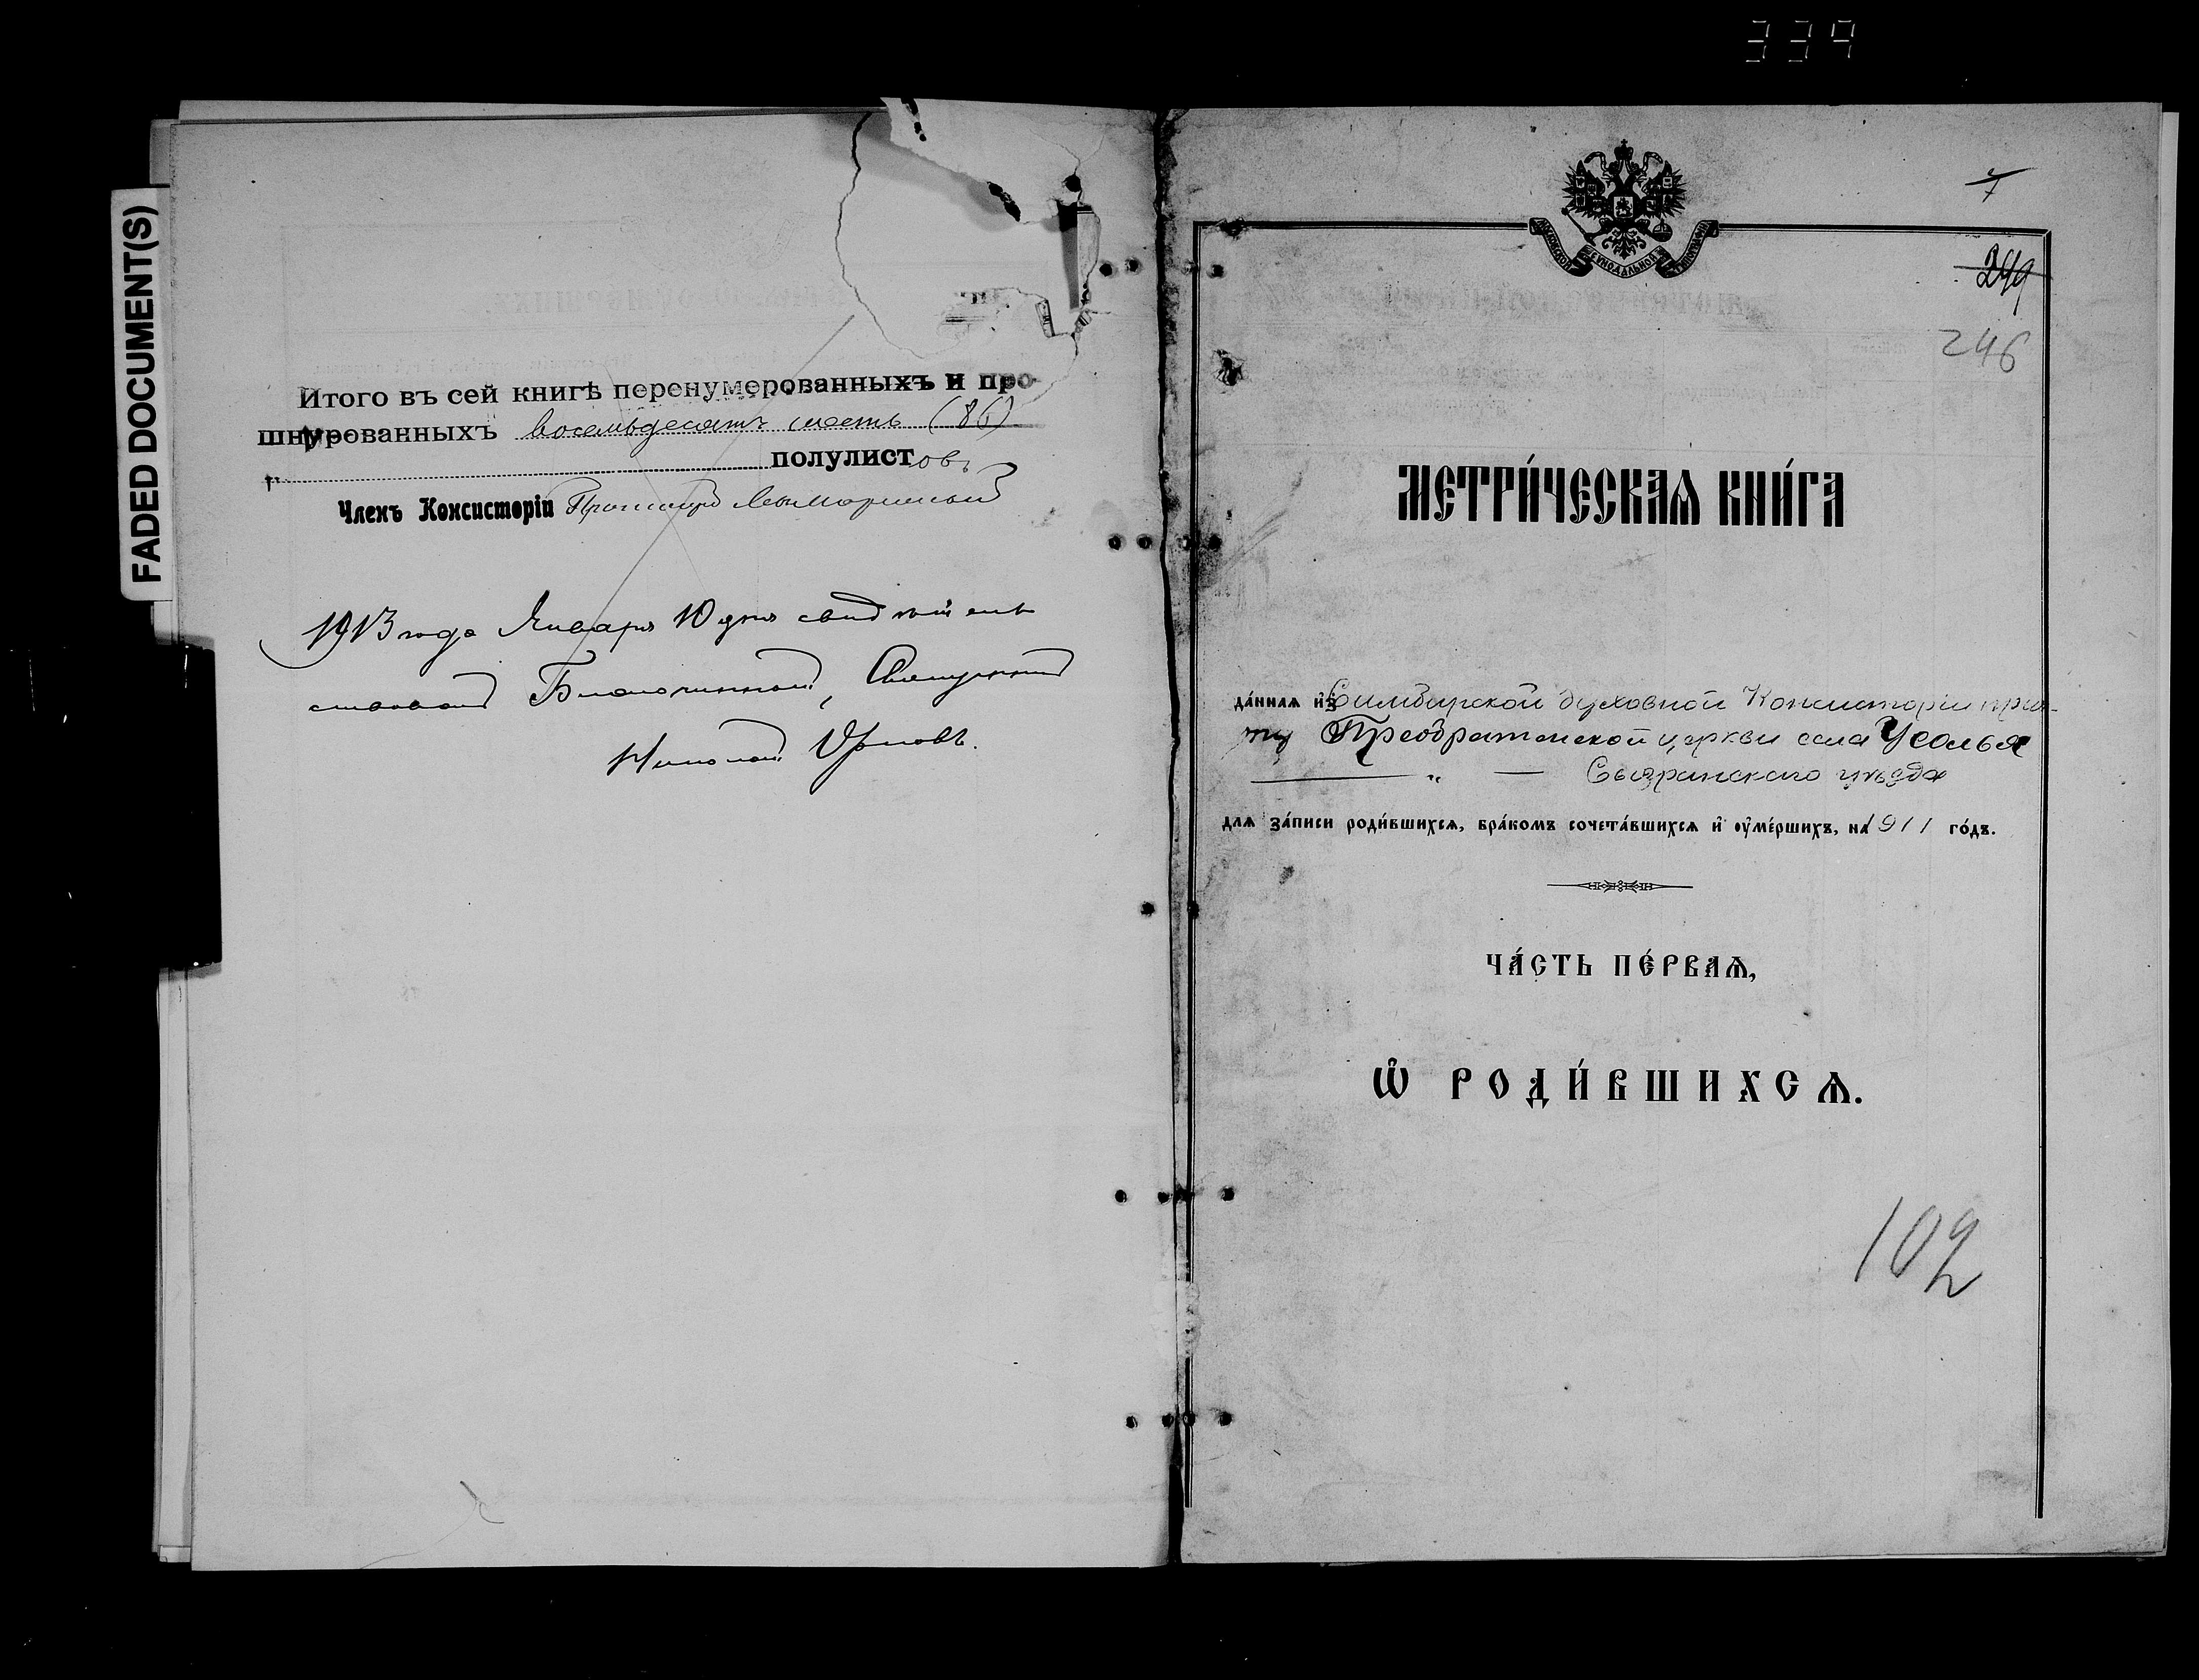 339
FADED DOCUMENT(S)
Итого въ сей книгѣ перенумерованныхъ и про-
шнурованныхъ восемьдесятъ шесть (86)
полулистовъ
Членъ Консисторіи
1913 года Января 10 дня свидѣтель
ствовалъ Благочинный, Священникъ
Николай
7
249
246
МОСКОВСКОЙ СѴНОДАЛЬНОЙ ТИПОГРАФІИ
МЕТРИ́ЧЕСКАѦ КНИ́ГА
да́ннаѧ и҆з̾ Симбирской Духовной Консисторіи прич-
ту Преображенской церкви села Усолья
— " — Сызранскаго уѣзда
длѧ за́писи роди́вшихсѧ, бра́комъ сочета́вшихсѧ и҆ ᲂу҆ме́ршихъ, на 1911 го́дъ.
ЧА́СТЬ ПЕ́РВАѦ,
Ѽ РОДИ́ВШИХСѦ.
102